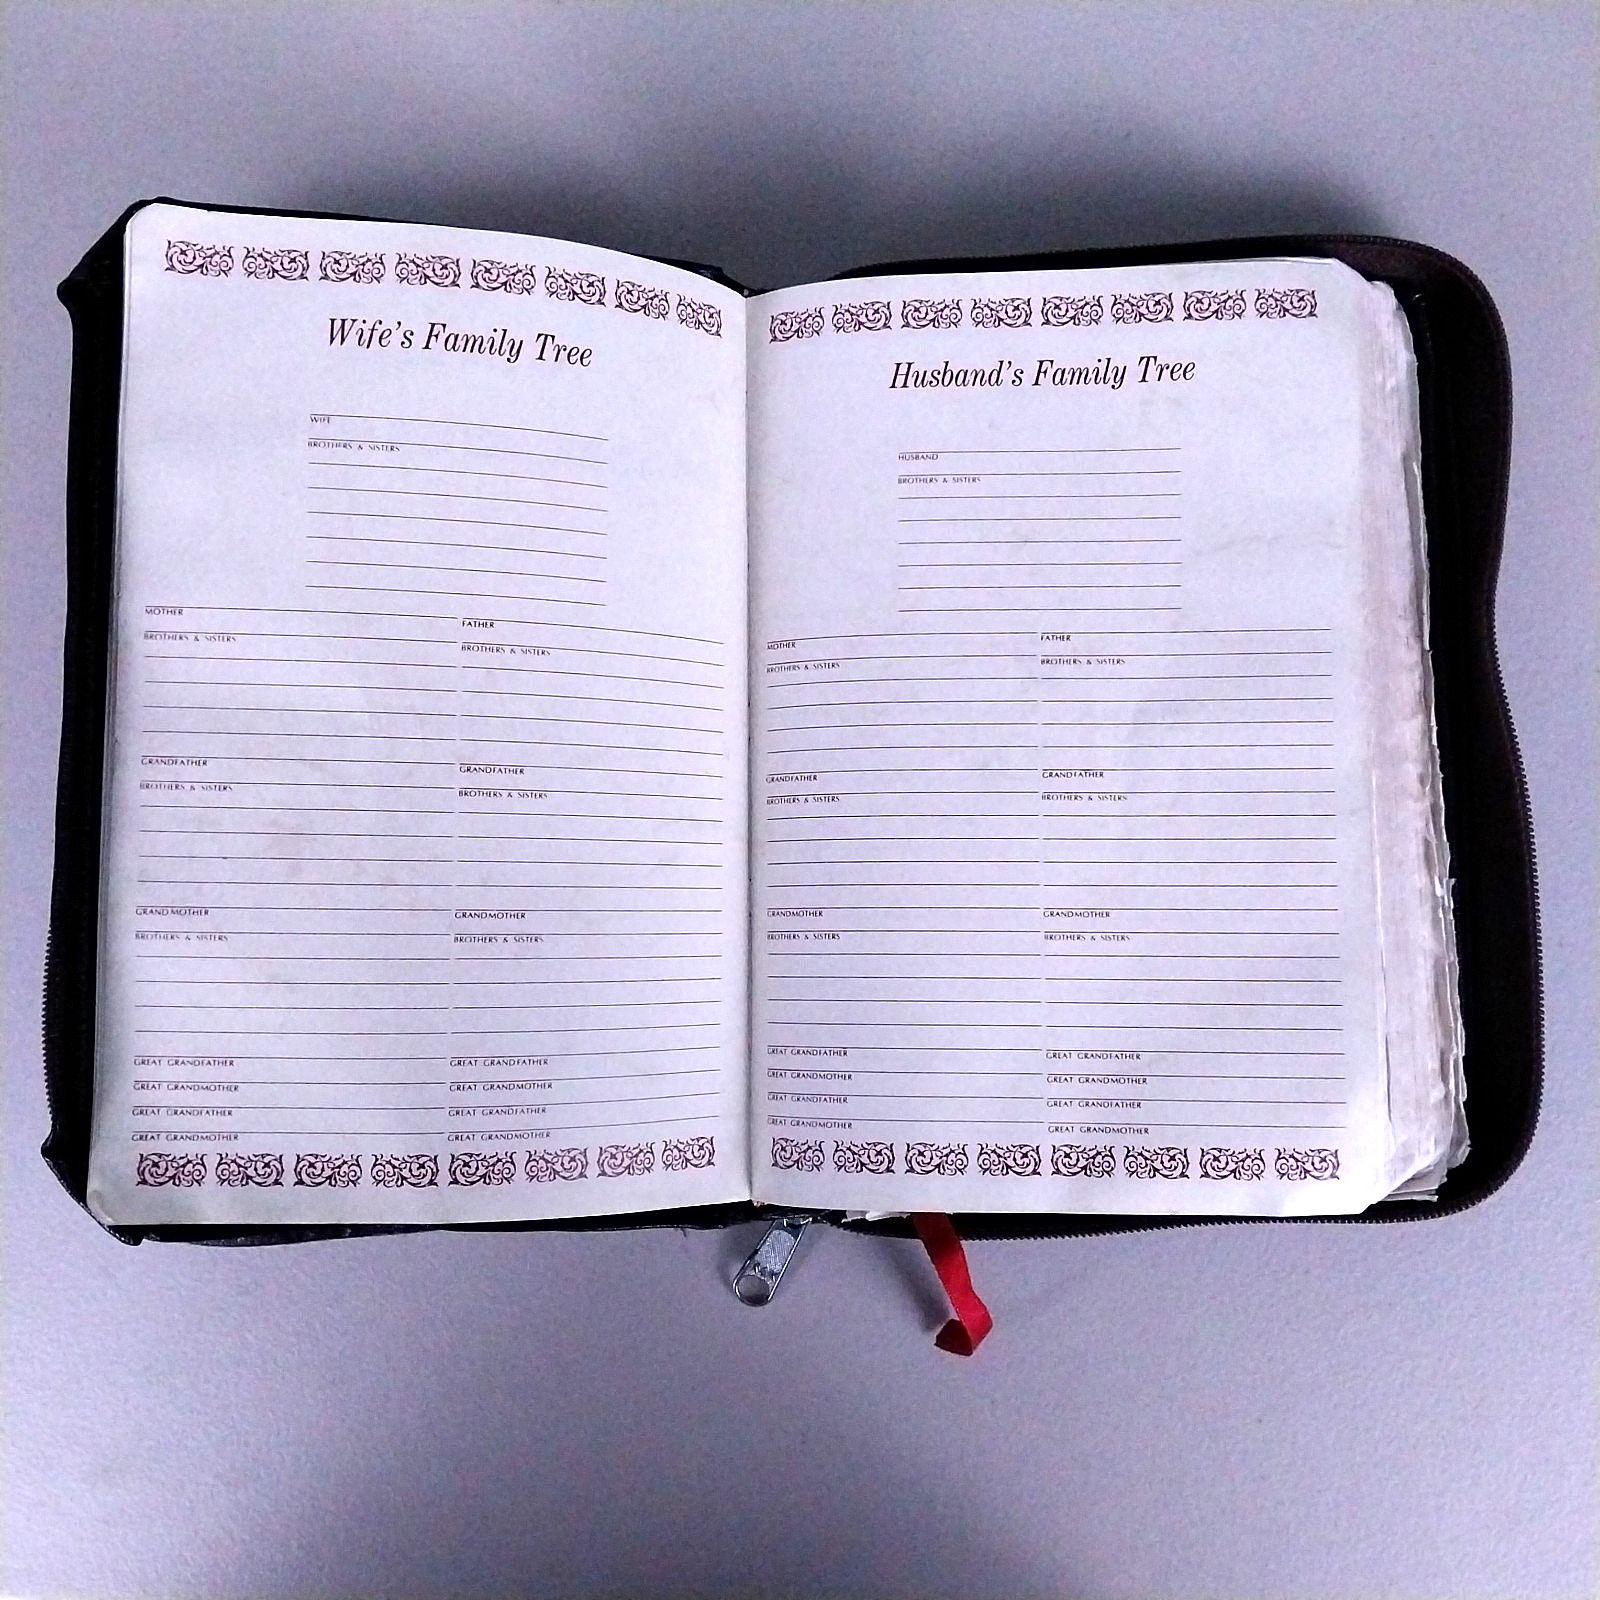 Wife's Family Tree
WIFE
BROTHERS & SISTERS
MOTHER
FATHER
BROTHERS & SISTERS
BROTHERS & SISTERS
GRANDFATHER
GRANDFATHER
BROTHERS & SISTERS
BROTHERS & SISTERS
GRANDMOTHER
GRANDMOTHER
BROTHERS & SISTERS
BROTHERS & SISTERS
GREAT GRANDFATHER
GREAT GRANDFATHER
GREAT GRANDMOTHER
GREAT GRANDMOTHER
GREAT GRANDFATHER
GREAT GRANDFATHER
GREAT GRANDMOTHER
GREAT GRANDMOTHER
Husband's Family Tree
HUSBAND
BROTHERS & SISTERS
MOTHER
FATHER
BROTHERS & SISTERS
BROTHERS & SISTERS
GRANDFATHER
GRANDFATHER
BROTHERS & SISTERS
BROTHERS & SISTERS
GRANDMOTHER
GRANDMOTHER
BROTHERS & SISTERS
BROTHERS & SISTERS
GREAT GRANDFATHER
GREAT GRANDFATHER
GREAT GRANDMOTHER
GREAT GRANDMOTHER
GREAT GRANDFATHER
GREAT GRANDFATHER
GREAT GRANDMOTHER
GREAT GRANDMOTHER